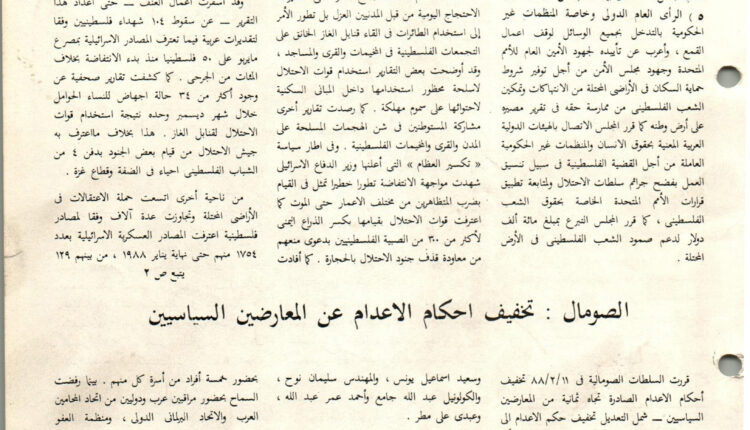 ٥) الرأى العام الدولى وخاصة المنظمات غير
الحكومية بالتدخل بجميع الوسائل لوقف اعمال
القمع ، وأعرب عن تأييده لجهود الأمين العام للأمم
المتحدة وجهود مجلس الأمن من أجل توفير شروط
حماية السكان فى الأراضى المحتلة من الانتهاكات وتمكين
الشعب الفلسطينى من ممارسة حقه فى تقرير مصيره
على أرض وطنه كما قرر المجلس الاتصال بالهيئات الدولية
العربية المعنية بحقوق الانسان والمنظمات غير الحكومية
العاملة من أجل القضية الفلسطينية فى سبيل تنسيق
العمل بفضح جرائم سلطات الاحتلال ولمتابعة تطبيق
قرارات الأمم المتحدة الخاصة بحقوق الشعب
الفلسطينى ، كما قرر المجلس التبرع بمبلغ مائة ألف
دولار لدعم صمود الشعب الفلسطينى فى الأرض
المحتلة .
الاحتجاج اليومية من قبل المدنيين العزل بل تطور الأمر
إلى استخدام الطائرات فى القاء قنابل الغاز الخانق على
التجمعات الفلسطينية فى المخيمات والقرى والمساجد ،
وقد أوضحت بعض التقارير استخدام قوات الاحتلال
لأسلحة محظور استخدامها داخل المبانى السكنية
لاحتوائها على سموم مهلكة . كما رصدت تقارير أخرى
مشاركة المستوطنين فى شن الهجمات المسلحة على
المدن والقرى والمخيمات الفلسطينية . وفى اطار سياسة
« تكسير العظام » التى أعلنها وزير الدفاع الاسرائيلى
شهدت مواجهة الانتفاضة تطورا خطيرا تمثل فى القيام
بضرب المتظاهرين من مختلف الاعمار حتى الموت كما
اعترفت قوات الاحتلال بقيامها بكسر الذراع اليمنى
لأكثر من ٣٠ من الصبية الفلسطينيين بدعوى منعهم
من معاودة قذف جنود الاحتلال بالحجارة . كما أفادت
وقد اسفرت اعمال العنف – حتى اعداد هذا
التقرير – عن سقوط ١٠٤ شهداء فلسطينيين وفقا
لتقديرات عربية فيما تعترف المصادر الاسرائيلية بمصرع
مايربو على ٥٠ فلسطينيا منذ بدء الانتفاضة بخلاف
المئات من الجرحى . كما كشفت تقارير صحفية عن
وجود أكثر من ٣٤ حالة اجهاض للنساء الحوامل
خلال شهر ديسمبر وحده نتيجة استخدام قوات
الاحتلال لقنابل الغاز . هذا بخلاف مااعترف به
جيش الاحتلال من قيام بعض الجنود بدفن ٤ من
الشباب الفلسطينى احياء فى الضفة وقطاع غزة .
من ناحية أخرى اتسعت حملة الاعتقالات فى
الأراضى المحتلة وتجاوزت عدة آلاف وفقا لمصادر
فلسطينية اعترفت المصادر العسكرية الاسرائيلية بعدد
١٧٥٤ منهم حتى نهاية يناير ١٩٨٨ ، من بينهم ١٢٩
يتبع ص ٢
الصومال : تخفيف احكام الاعدام عن المعارضين السياسيين
قررت السلطات الصومالية فى ٨٨/٢/١١ تخفيف
أحكام الاعدام الصادرة تجاه ثمانية من المعارضين
السياسيين – شمل التعديل تخفيف حكم الاعدام الى
وسعيد اسماعيل يونس ، والمهندس سليمان نوح ،
والكولونيل عبد الله جامع وأحمد عمر عبد الله ،
وعبدى على مطر .
بحضور خمسة أفراد من أسرة كل منهم . بينما رفضت
السماح بحضور مراقبين عرب ودوليين من اتحاد المحامين
العرب والاتحاد البرلمانى الدولى ، ومنظمة العفو